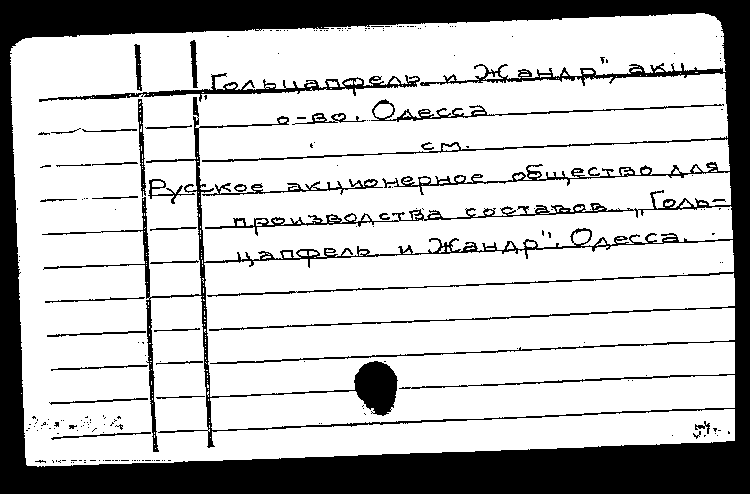 „Гольцапфель и Жандр", акц.
о-во. Одесса
см.
Русское акционерное общество для
производства составов „Голь-
цапфель и Жандр". Одесса.